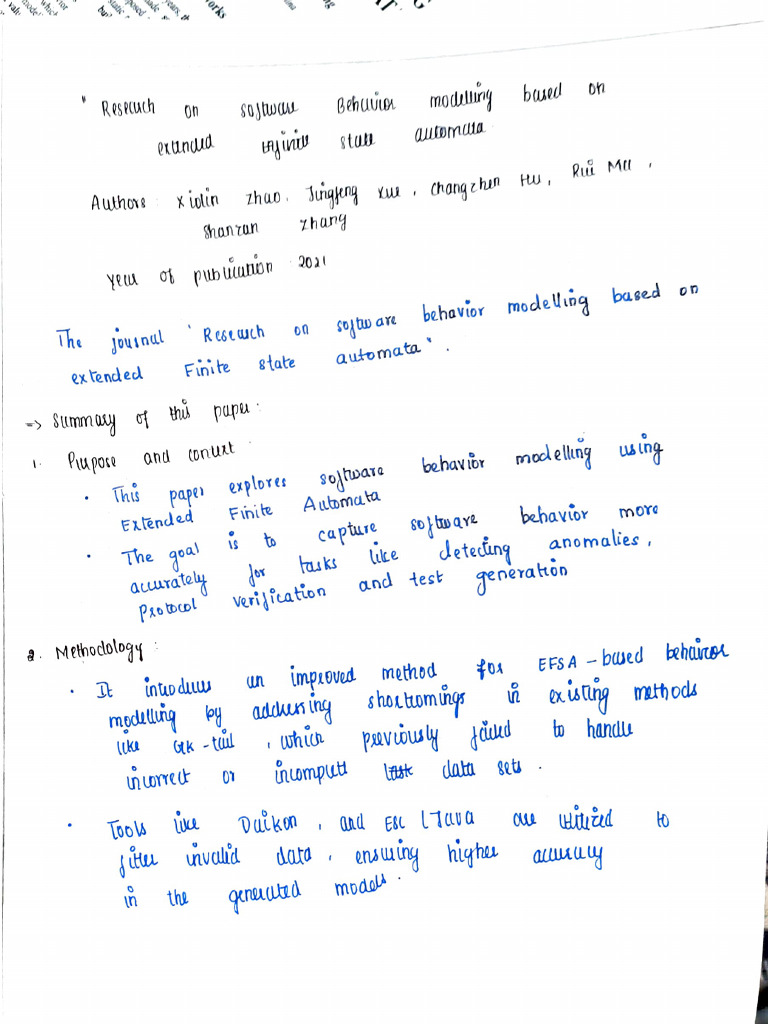 years, th
orks
" Research on software Behavior modelling based on
extended infinite state automata
Authors : Xiolin Zhao, Jingfeng Xue, Changzhen Hu, Rui Ma,
Shanzan Zhang
Year of publication : 2021
The journal " Research on software behavior modelling based on
extended Finite state automata".
=> Summary of this paper :
1. Purpose and context :
• This paper explores software behavior modelling using
Extended Finite Automata
• The goal is to capture software behavior more
accurately for tasks like detecting anomalies,
Protocol verification and test generation
2. Methodology :
• It introduces an improved method for EFSA - based behavior
modelling by addressing shortcomings in existing methods
like GK - tail, which previously failed to handle
incorrect or incomplete data sets.
• Tools like Daikon, and ESC/Java are utilized to
filter invalid data, ensuring higher accuracy
in the generated models.